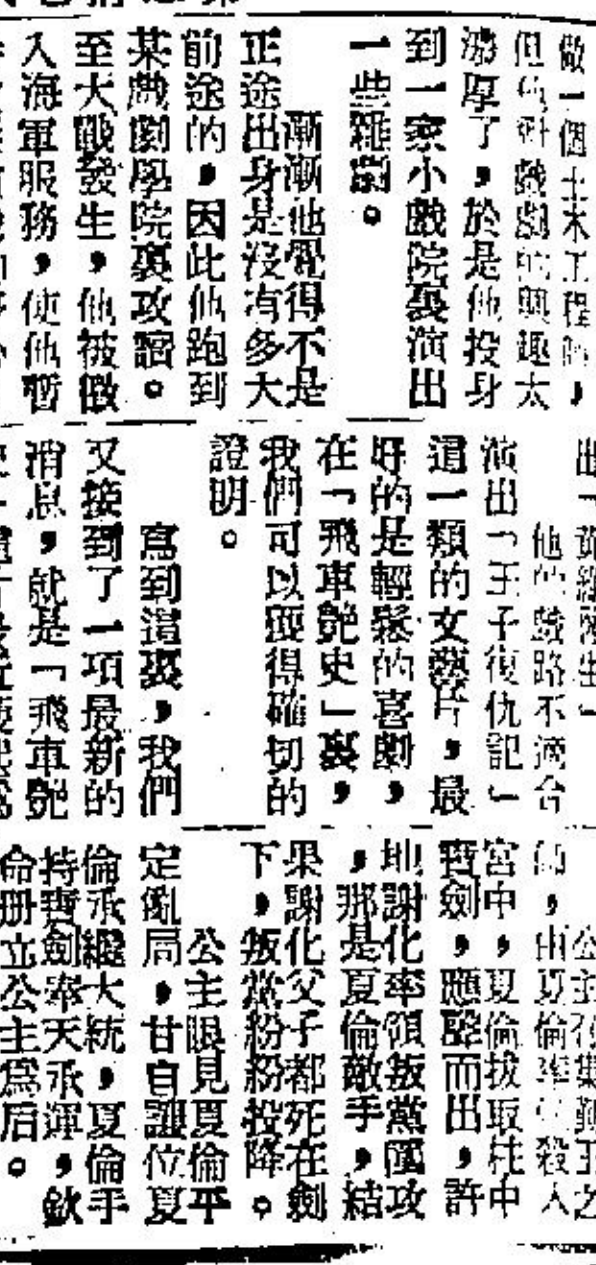 做一個土木工程師，
但他對戲劇的興趣太
濃厚了，於是他投身
到一家小戲院裏演出
一些雜劇。
漸漸他覺得不是
正途出身是沒有多大
前途的，因此他跑到
某戲劇學院裏攻讀。
至大戰發生，他被徵
入海軍服務，使他暫
他的戲路不適合
演出「王子復仇記」
這一類的文藝片，最
好的是輕鬆的喜劇，
在「飛車艶史」裏，
我們可以獲得確切的
證明。
寫到這裏，我們
又接到了一項最新的
消息，就是「飛車艶
公主召集勤王之
師，由夏倫率領殺入
宮中，夏倫拔取柱中
寶劍，應聲而出，許
地謝化率領叛黨圍攻
，那是夏倫敵手，結
果謝化父子都死在劍
下，叛黨紛紛投降。
公主眼見夏倫平
定亂局，甘自讓位夏
倫承繼大統，夏倫手
持寶劍奉天承運，欽
命册立公主爲后。